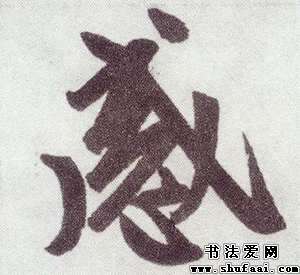 感
书法爱网
www.shufaai.com